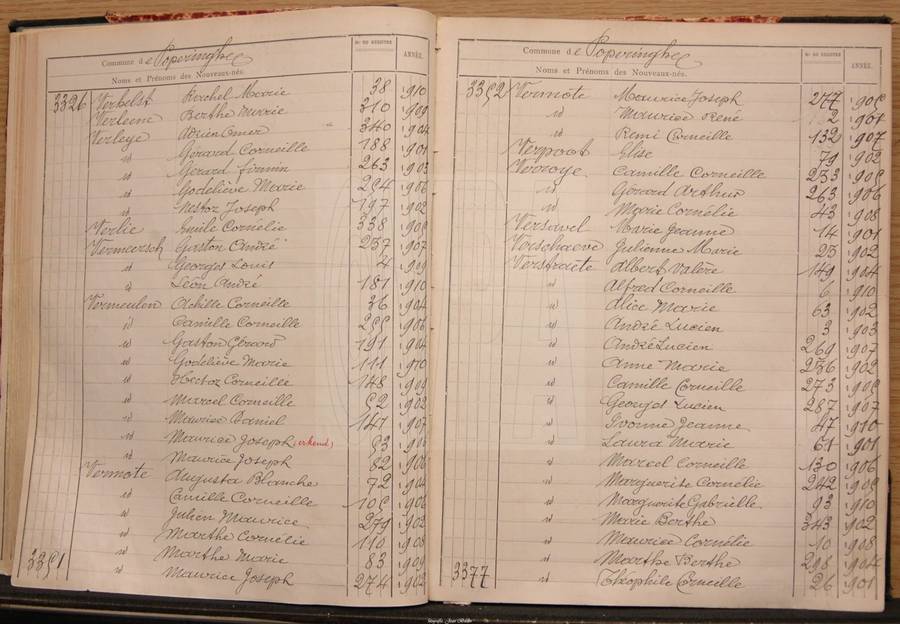 Commune de Poperinghe
Nº DU REGISTRE
ANNÉE
Noms et Prénoms des Nouveaux-nés.
3326 Verbelst Rachel Marie 38 1910
Verleene Berthe Marie 310 1909
Verleye Adrien Omer 340 1904
id Gérard Corneille 188 1901
id Gérard Firmin 263 1903
id Godeliève Marie 254 1906
id Nestor Joseph 197 1902
Verlie Emile Cornélie 338 1905
Vermeersch Gaston André 237 1907
id Georges Louis 4 1909
id Léon André 181 1910
Vermeulen Achille Corneille 36 1904
id Camille Corneille 255 1906
id Gaston Gérard 191 1904
id Godeliève Marie 111 1910
id Hector Corneille 148 1909
id Marcel Corneille 52 1902
id Maurice Daniel 147 1907
id Maurice Joseph (erkend) 53
id Maurice Joseph 82 1906
Vermote Augusta Blanche 72 1904
id Camille Corneille 105 1906
id Julien Maurice 279 1902
id Marthe Cornélie 110 1908
id Marthe Marie 83 1909
3351 id Maurice Joseph 274 1903
Commune de Poperinghe
Nº DU REGISTRE
ANNÉE
Noms et Prénoms des Nouveaux-nés.
3352 Vermote Maurice Joseph 277 1905
id Maurice René 2 1901
id Remi Corneille 132 1907
Verpoot Elise 79 1902
Verroye Camille Corneille 233 1905
id Gérard Arthur 263 1906
id Marie Cornélie 43 1908
Versavel Marie Jeanne 14 1901
Verschaeve Julienne Marie 23 1902
Verstraete Albert Valère 149 1904
id Alfred Corneille 6 1910
id Alice Marie 63 1902
id André Lucien 3 1903
id André Lucien 269 1907
id Anne Marie 236 1902
id Camille Corneille 273 1905
id Georges Lucien 287 1907
id Ivonne Jeanne 47 1910
id Laura Marie 61 1901
id Marcel Corneille 130 1906
id Marguerite Cornélie 242 1905
id Marguerite Gabrielle 93 1910
id Marie Berthe 343 1902
id Maurice Cornélie 10 1908
id Marthe Berthe 298 1904
3377 id Théophile Corneille 26 1901